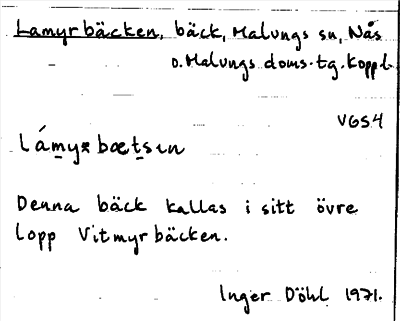 Lamyrbäcken, bäck, Malungs sn, Nås
o. Malungs doms. tg. Koppb.
VGS4
Denna bäck kallas i sitt övre
lopp Vitmyrbäcken.
Inger Döhl 1971.